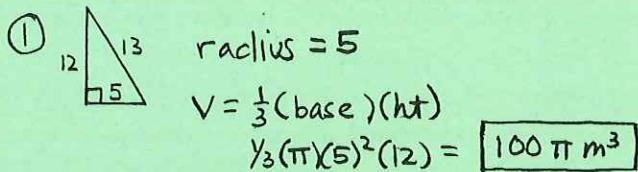 ①
12 13 5
radius = 5
V = ⅓(base)(ht)
⅓(π)(5)²(12) = 100 π m³